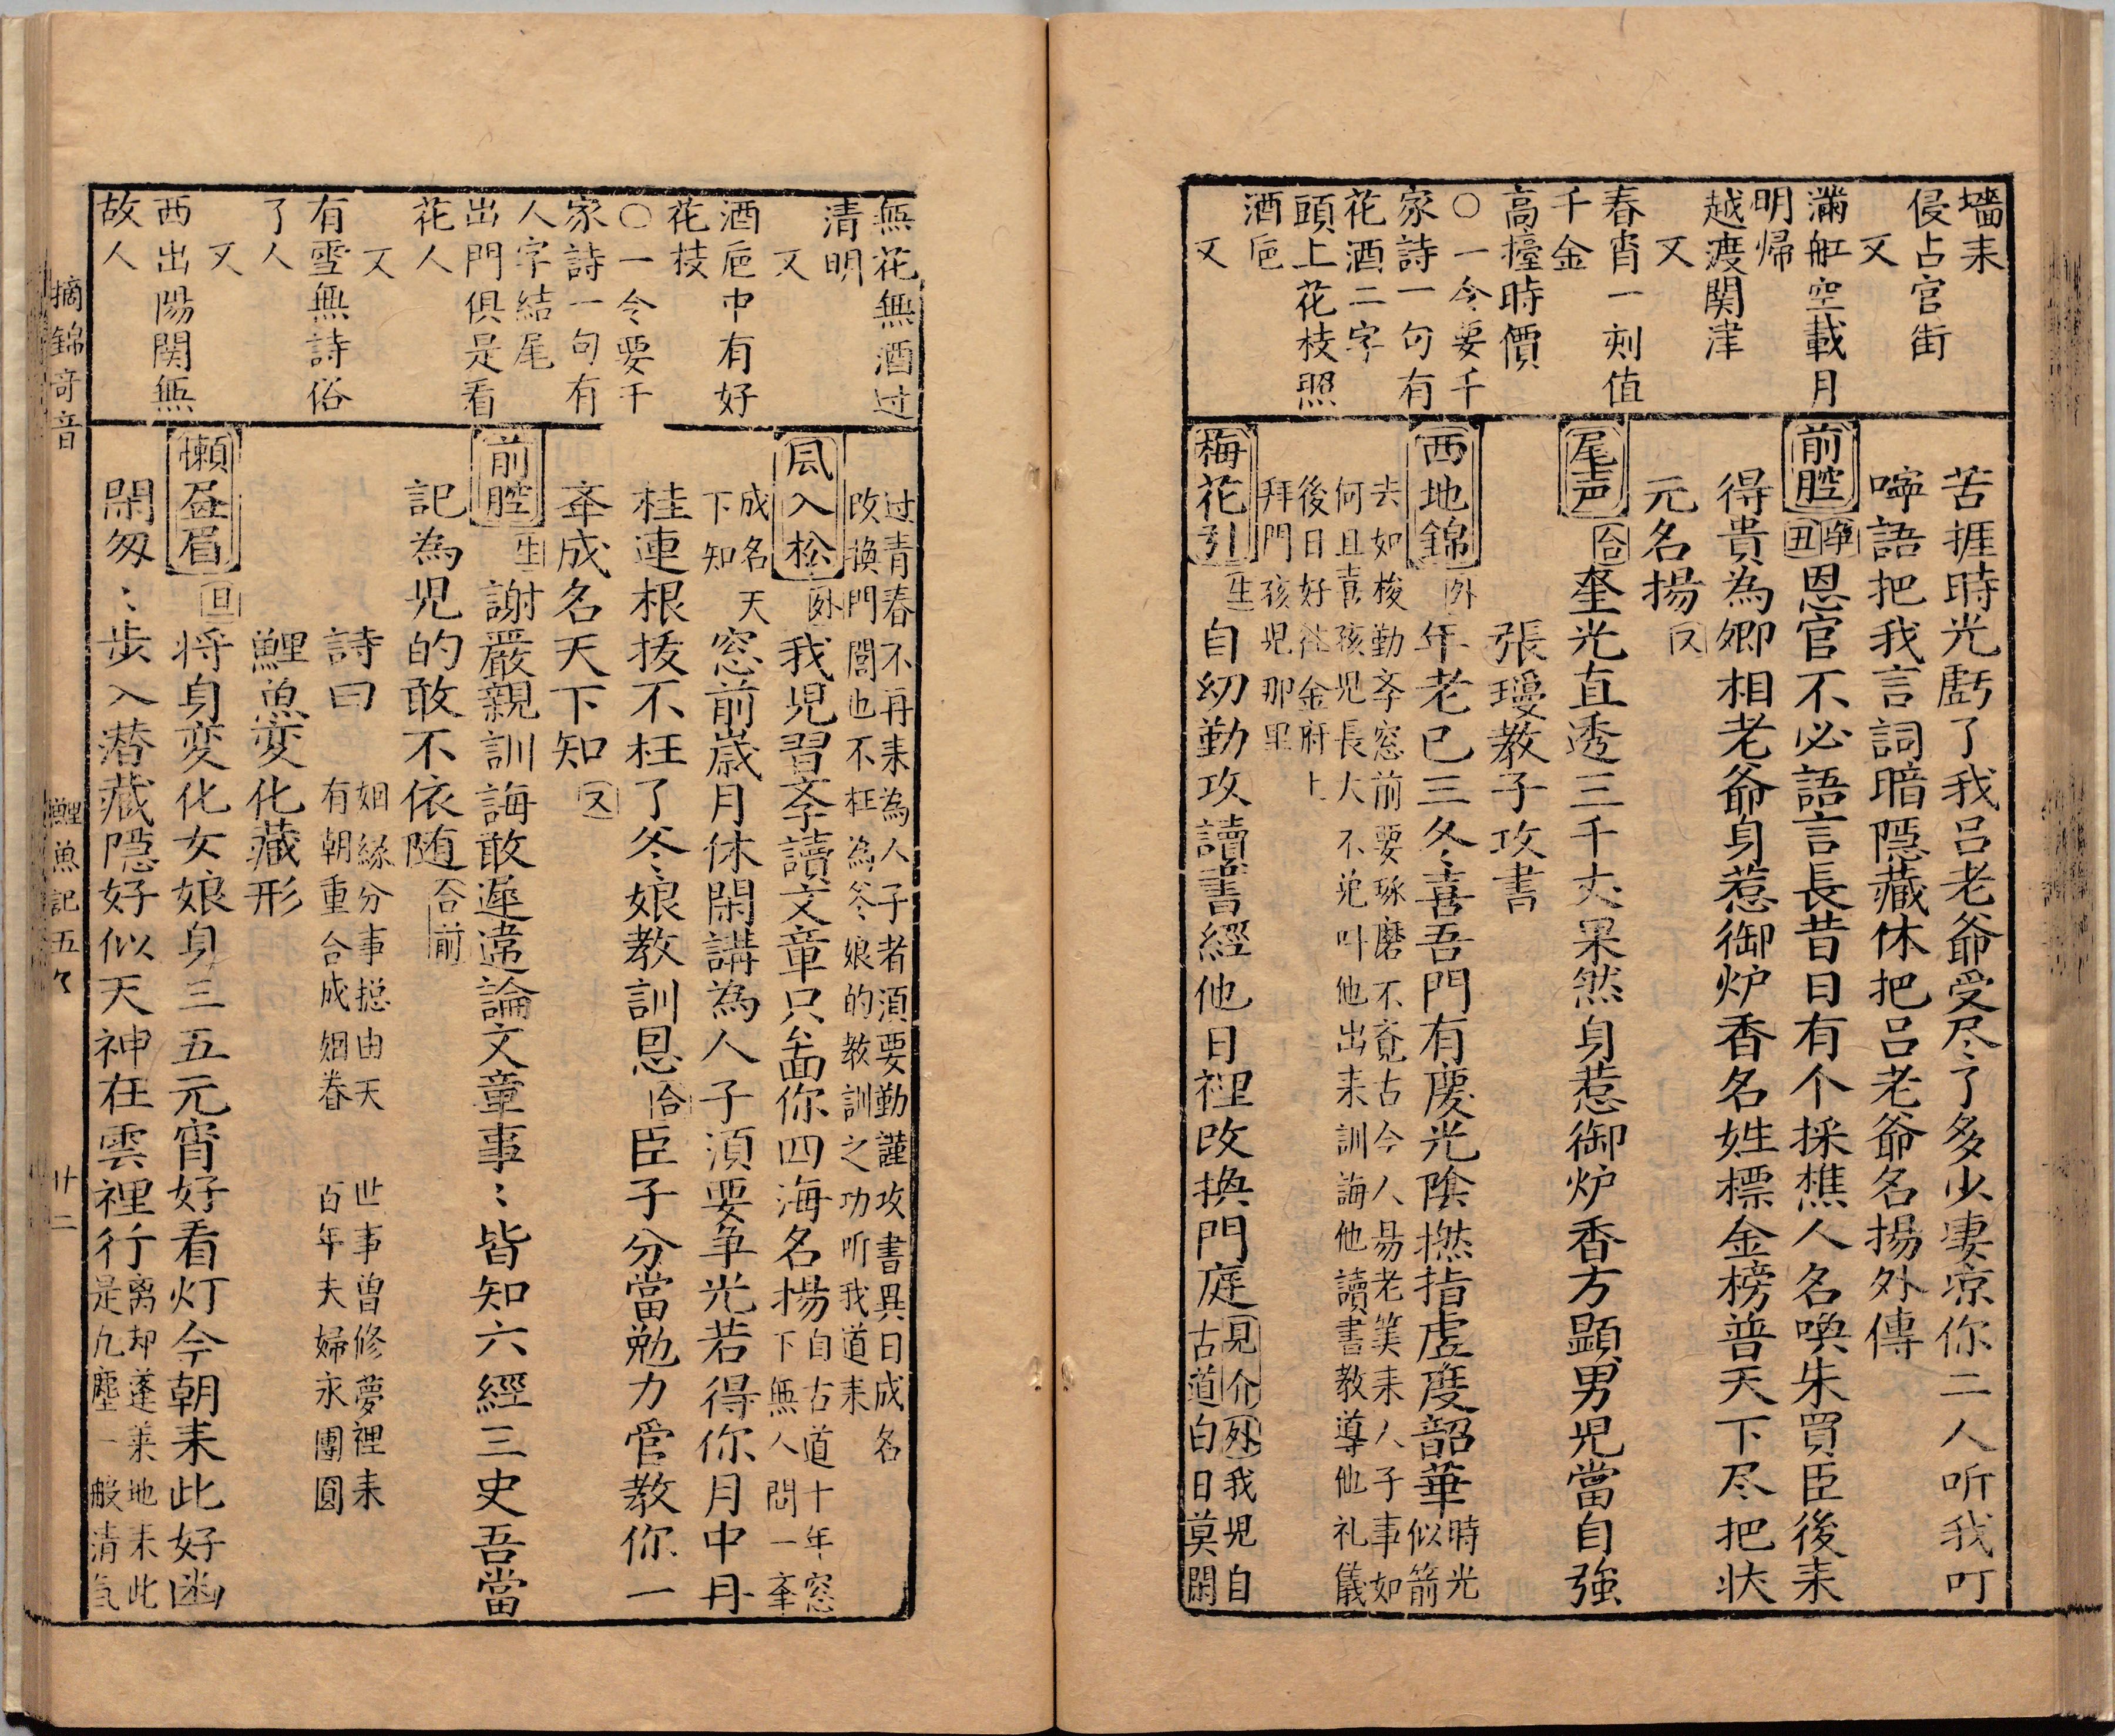 墻耒
侵占官街
又
滿舡空載月
明帰
越渡関津
又
春宵一刻值
千金
高擡時價
○一令要千
家詩一句有
花酒二字
頭上花枝照
酒卮
又
苦捱時光虧了我呂老爺受尽了多少凄凉你二人听我叮
嚀語把我言詞暗隱藏休把呂老爺名揚外傳
前腔 净丑 恩官不必語言長昔日有个採樵人名喚朱買臣後耒
得貴為卿相老爺身惹御炉香名姓標金榜普天下尽把状
元名揚 又
尾声 合 奎光直透三千丈果然身惹御炉香方顕男児當自強
張瓊教子攻書
西地錦 外 年老已三冬喜吾門有慶光陰撚指虗度韶華 時光似箭
去如梭勤斈窓前要琢磨不竟古今人昜老筭耒人子事如
何且喜孩児長大不免叫他出耒訓誨他讀書教導他礼儀
後日好往金府上
拜門孩児那里
梅花引 生 自幼勤攻讀書經他日裡改換門庭 見介 外 我児自
古道白日莫閑
無花無酒过
清明
又
酒卮中有好
花枝
○一令要千
家詩一句有
人字結尾
出門俱是看
花人
又
有雪無詩俗
了人
又
西出陽関無
故人
过青春不再耒為人子者須要勤謹攻書異日成名
改換門閭也不枉為爹娘的教訓之功听我道耒
風入松 外 我児習斈讀文章只啚你四海名揚 自古道十年窓下無人問一舉
成名天下知 窓前歳月休閑講為人子須要争光若得你月中丹
桂連根拔不枉了爹娘教訓恩 合 臣子分當勉力官教你一
舉成名天下知 又
前腔 生 謝嚴親訓誨敢遲違論文章事〻皆知六經三史吾當
記為児的敢不依随 合前
詩曰 姻緣分事摠由天 世事曽修夢裡耒
有朝重合成姻眷 百年夫婦永團圓
鯉魚変化藏形
懶畫眉 旦 将身変化女娘身三五元宵好看灯今朝耒此好幽
閑匆〻步入潜藏隱好似天神在雲裡行 离却蓬莱地耒此
是凢塵一般清氣
摘錦奇音
鯉魚記五乀
廿二